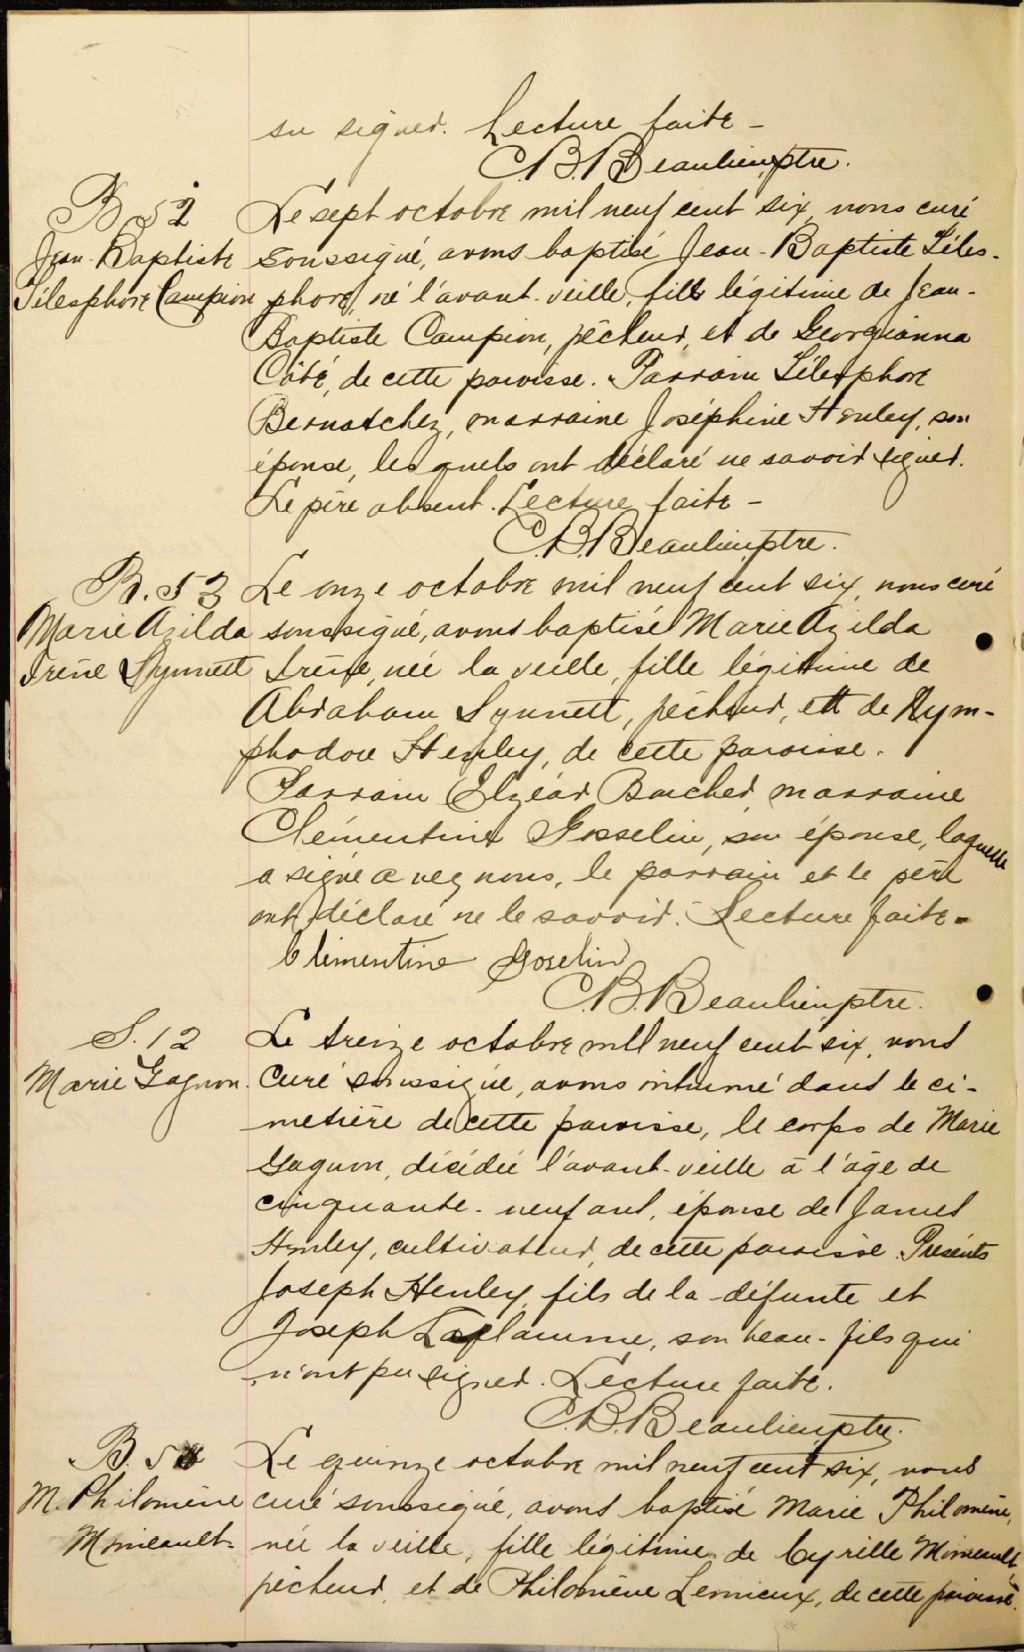 su signer. Lecture faite -
C.B. Beaulieu, ptre.
B 52
Jean-Baptiste
Télesphore Campion
Le sept octobre mil neuf cent six, nous curé
soussigné, avons baptisé Jean-Baptiste Téles-
phore, né l'avant-veille, fils légitime de Jean-
Baptiste Campion, pêcheur, et de Georgianna
Côté, de cette paroisse. Parrain Télesphore
Bernatchez, marraine Joséphine Henley, son
épouse, lesquels ont déclaré ne savoir signer.
Le père absent. Lecture faite -
C.B. Beaulieu, ptre.
B. 53
Marie Azilda
Irène Synnett
Le onze octobre mil neuf cent six, nous curé
soussigné, avons baptisé Marie Azilda
Irène, née la veille, fille légitime de
Abraham Synnett, pêcheur, et de Nym-
phodore Henley, de cette paroisse.
Parrain Elzéar Boucher, marraine
Clémentine Gosselin, son épouse, laquelle
a signé avec nous, le parrain et le père
ont déclaré ne le savoir. Lecture faite -
Clémentine Goselin
C.B. Beaulieu, ptre.
S. 12
Marie Gagnon.
Le treize octobre mil neuf cent six, nous
curé soussigné, avons inhumé dans le ci-
metière de cette paroisse, le corps de Marie
Gagnon, décédée l'avant-veille à l'âge de
cinquante-neuf ans, épouse de James
Henley, cultivateur, de cette paroisse. Présents
Joseph Henley, fils de la défunte et
Joseph Laflamme, son beau-fils qui
n'ont pu signer. Lecture faite.
C.B. Beaulieu, ptre.
M. Philomène
Mimeault
Le quinze octobre mil neuf cent six, nous
curé soussigné, avons baptisé Marie Philomène,
née la veille, fille légitime de Cyrille Mimeault,
pêcheur, et de Philomène Lemieux, de cette paroisse.